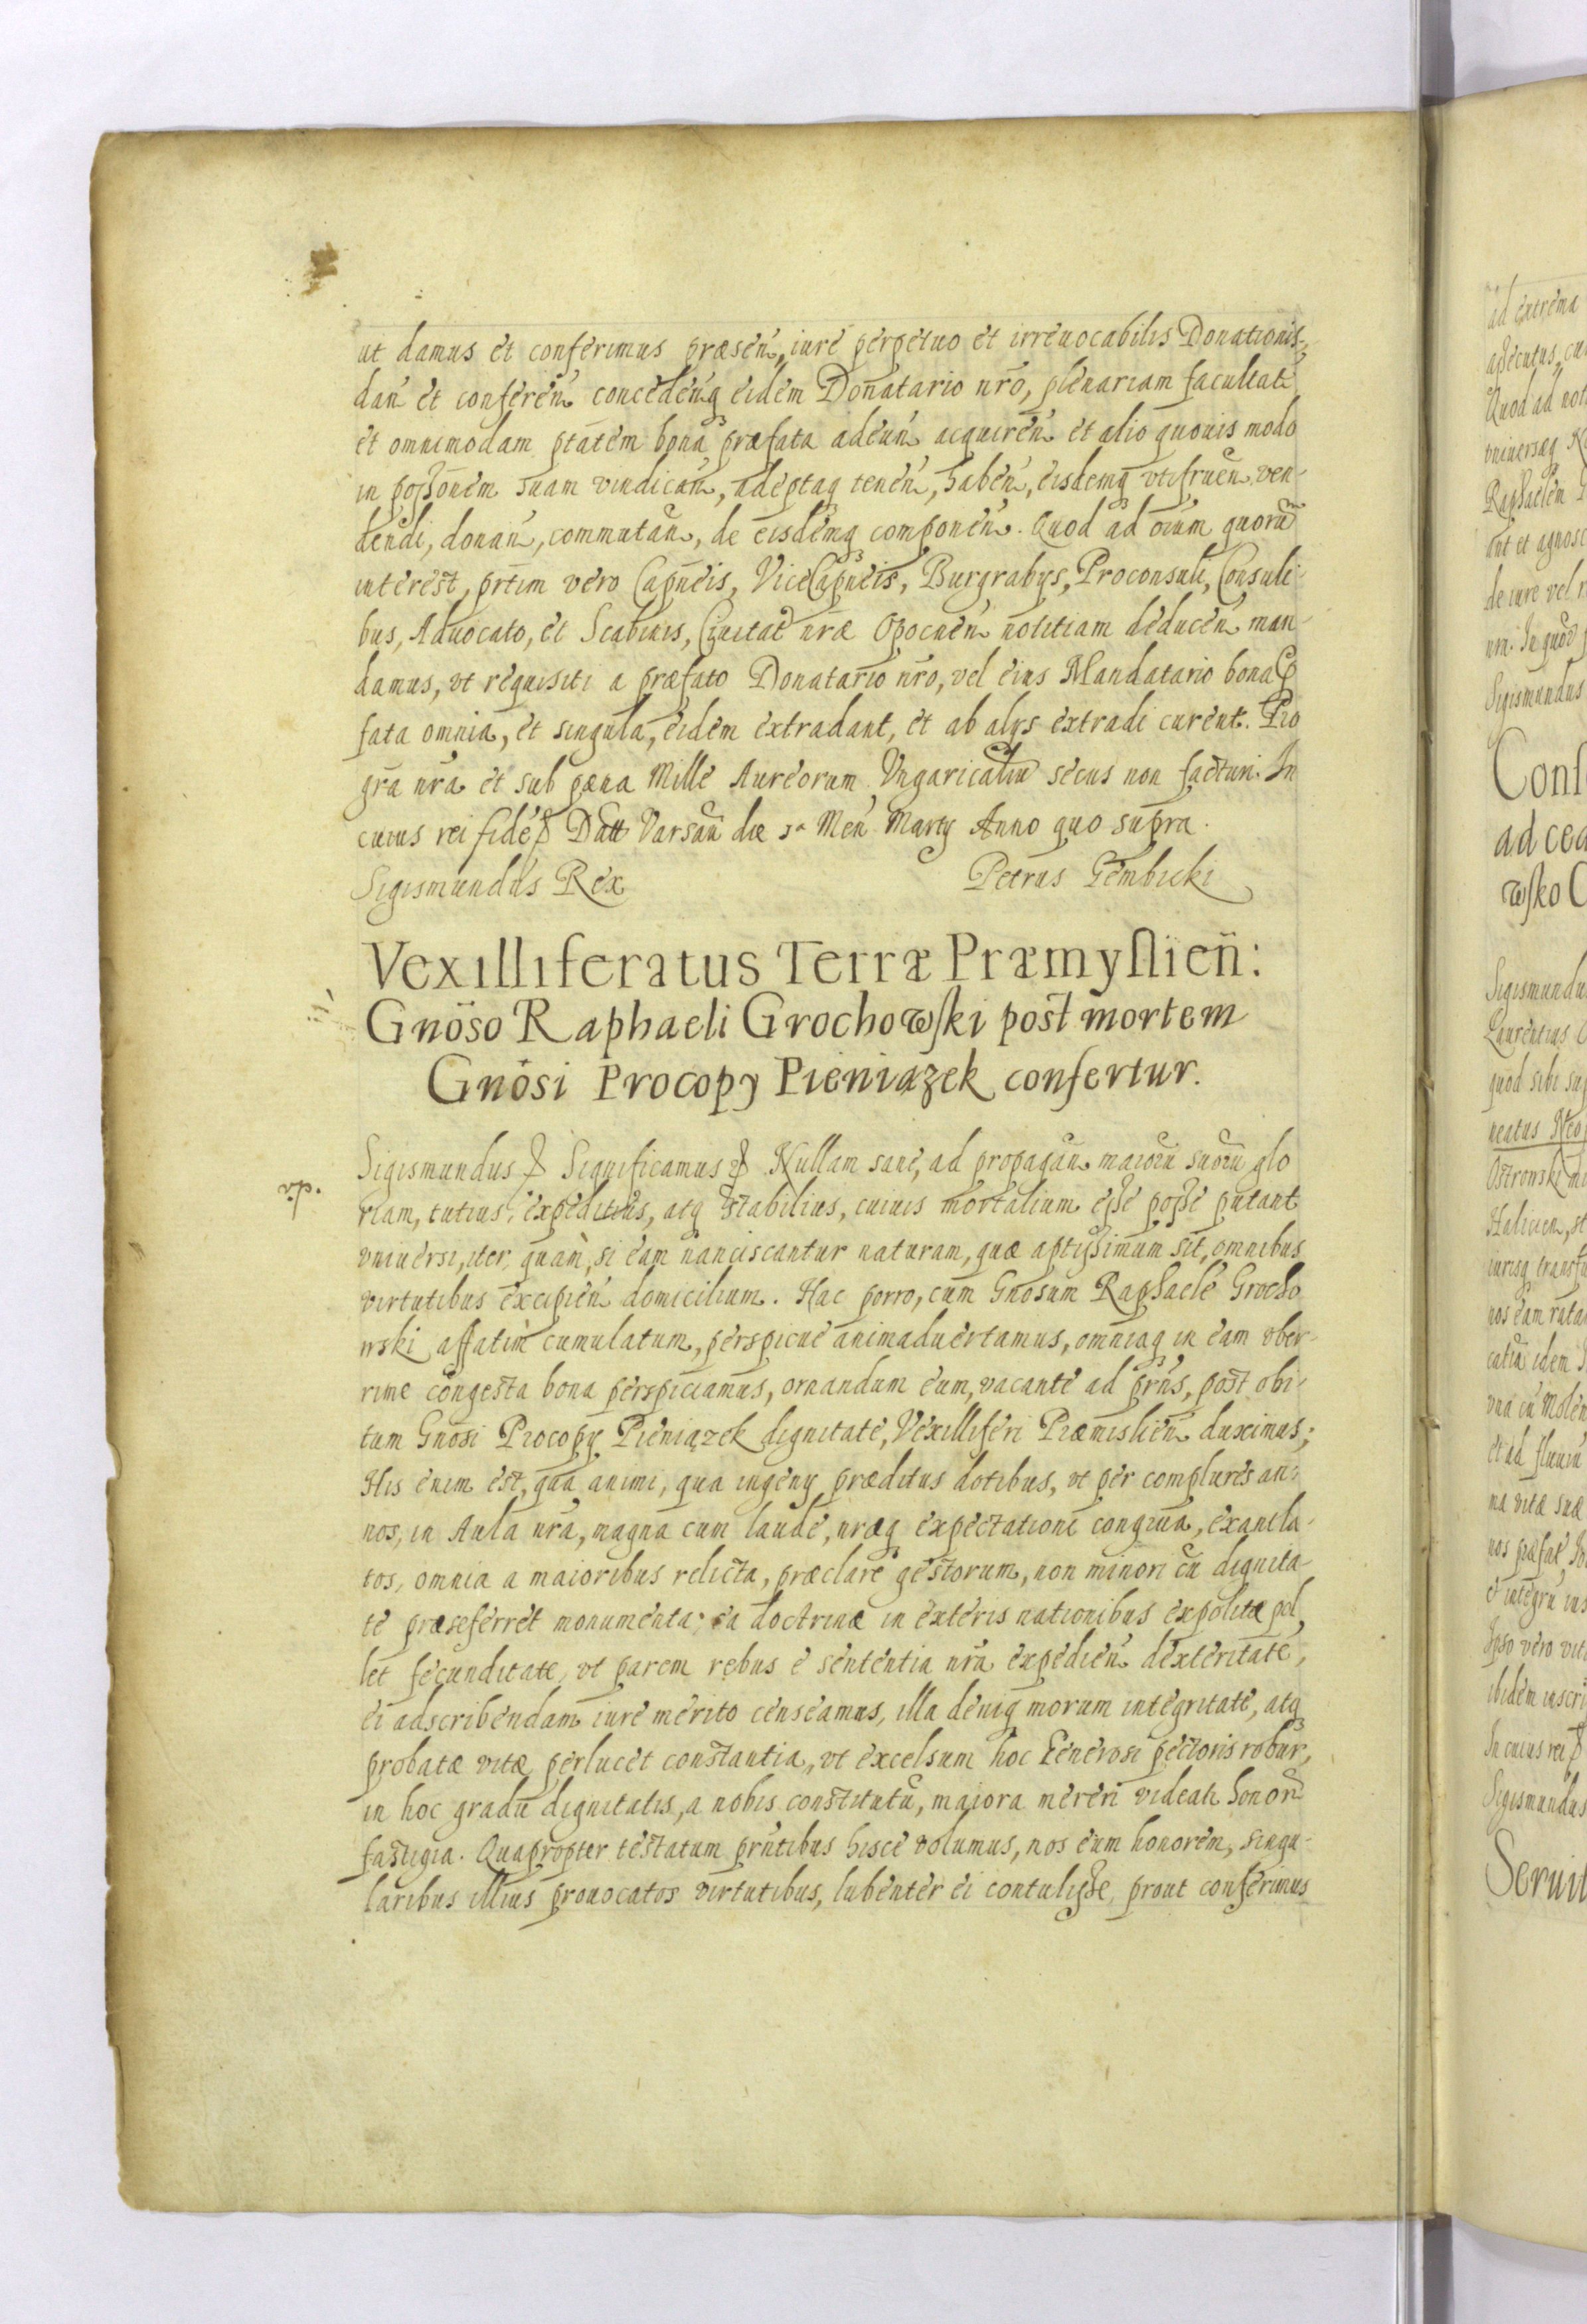 ut damus et conferimus præsen, iure perpetuo et irreuocabilis Donationis,
dan et conferen concedenq eidem Donatario nro, plenariam facultate
et omnimodam ptatem bona præfata adeun acquiren et alio quouis modo
in possonem suam vindican, adeptaq tenen, haben, eisdemq vtifruen, ven-
dendi, donan, commutan, de eisdemq componen. Quod ad oium quoru
interest, prtim vero Capneis, ViceCapneis, Burgrabys, Proconsuli, Consuli-
bus, Aduocato, et Scabinis, Ciuitat nræ Opocnen notitiam deducen man-
damus, vt requisiti a præfato Donatario nro, vel eius Mandatario bona p
fata omnia, et singula, eidem extradant, et ab alys extradi curent. Pro
gra nra et sub pæna Mille Aureorum Vngaricaliu secus non facturi. In
cuius rei fide Datt Varsau die Men Marty Anno quo supra.
Sigismundus Rex Petrus Gembicki
Vexilliferatus Terræ Præmyslien:
Gnoso Raphaeli Grochowski post mortem
Gnosi Procopy Pieniązek confertur.
Sigismundus Significamus Nullam sane, ad propagan maioru suoru glo
riam, tutius, expeditius, atq stabilius, cuiuis mortalium esse posse putant
vniuersi, iter, quam, si eam nanciscantur naturam, quæ aptissimum sit, omnibus
virtutibus excipien domicilium. Hac porro, cum Gnosum Raphaele Grocho
wski affatim cumulatum, perspicue animaduertamus, omniaq in eam vber-
rime congesta bona perspiciamus, ornandum eum, vacante ad prns, post obi-
tum Gnosi Procopy Pieniązek dignitate, Vexilliferi Præmislien duximus;
His enim est, qua animi, qua ingeny præditus dotibus, vt per complures an-
nos, in Aula nra, magna cum laude, nræq expectatione congrua, exantla-
tos, omnia a maioribus relicta, præclare gestorum, non minori cu dignita-
te præseferret monumenta; ea doctrinæ in exteris nationibus expolitæ pol
let fecunditate, vt parem rebus e sententia nra expedien dexteritate,
ei adscribendam iure merito censeamus, illa deniq morum integritate, atq
probatæ vitæ perlucet constantia, vt excelsum hoc Generosi pectoris robur,
in hoc gradu dignitatis, a nobis constitutu, maiora mereri videat honoru
fastigia. Quapropter testatum prntibus hisce volumus, nos eum honorem, singu-
laribus illius prouocatos virtutibus, lubenter ei contulisse, prout conferimus